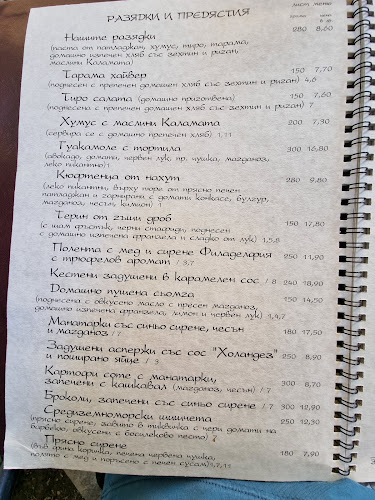 РАЗЯДКИ И ПРЕДЯСТИЯ
Нашите разядки 280 8,60
(паста от патладжан, хумус, тиро, тарама,
домашно изпечен хляб със зехтин и риган,
маслини Каламата)
Тарама хайвер 150 7,70
(поднесен с препечен домашен хляб със зехтин и риган) 4,6
Тиро салата (домашно приготвена) 150 7,60
(поднесена с препечен домашен хляб със зехтин и риган) 7
Хумус с маслини Каламата 200 7,30
(сервира се с домашно препечен хляб) 1,11
Гуакамоле с тортила 300 16,80
(авокадо, домати, червен лук, пр. чушка, магданоз,
леко пикантно)1
Кюфтенца от нахут 280 9,80
(леко пикантни, върху пюре от прясно печен
патладжан и гарнирани с домати конкасе, булгур,
магданоз, чесън, кимион) 1
Терин от гъши дроб 150 17,80
(с шам фъстък, черни стафиди, поднесен
с домашно изпечена франзела и сладко от лук) 1,5,8
Полента с мед и сирене Филаделфия 250 11,90
с трюфелов аромат / 3,7
Кестени задушени в карамелен сос / 8 240 18,90
Домашно пушена сьомга 150 14,50
(поднесена с овкусено масло с пресен магданоз,
домашно изпечена франзела, лимон и червен лук) 1,4,7
Манатарки със синьо сирене, чесън 180 17,50
и магданоз / 7
Задушени аспержи със сос "Холандез" 250 8,90
и поширано яйце / 3
Картофи соте с манатарки, 300 8,70
запечени с кашкавал (магданоз, чесън) / 7
Броколи, запечени със синьо сирене / 7 300 12,90
Средиземноморски шишчета 250 12,30
(прясно сирене, завито в тиквичка с чери домати на
барбекю, овкусени с босилеково песто) 7
Прясно сирене 180 7,90
печена червена чушка,
полято с мед и поръсено с печен сусам)3,7,11